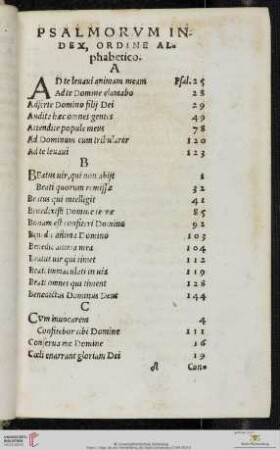 PSALMORVM IN-
DEX, ORDINE AL-
phabetico.
A
AD te leuaui animam meam Psal. 25
Ad te Domine clamabo 28
Adferte Domino filij Dei 29
Audite hæc omnes gentes 49
Attendite popule meus 78
Ad Dominum cum tribularer 120
Ad te leuaui 123
B
BEatus uir, qui non abijt 1
Beati quorum remissæ 32
Beatus qui intelligit 41
Benedixisti Domine terræ 85
Bonum est confiteri Domino 92
Benedic anima Domino 103
Benedic anima mea 104
Beatus uir qui timet 112
Beati immaculati in uia 119
Beati omnes qui timent 128
Benedictus Dominus Deus 144
C
CVm inuocarem 4
Confitebor tibi Domine 111
Conserua me Domine 16
Cœli enarrant gloriam Dei 19
A Con-